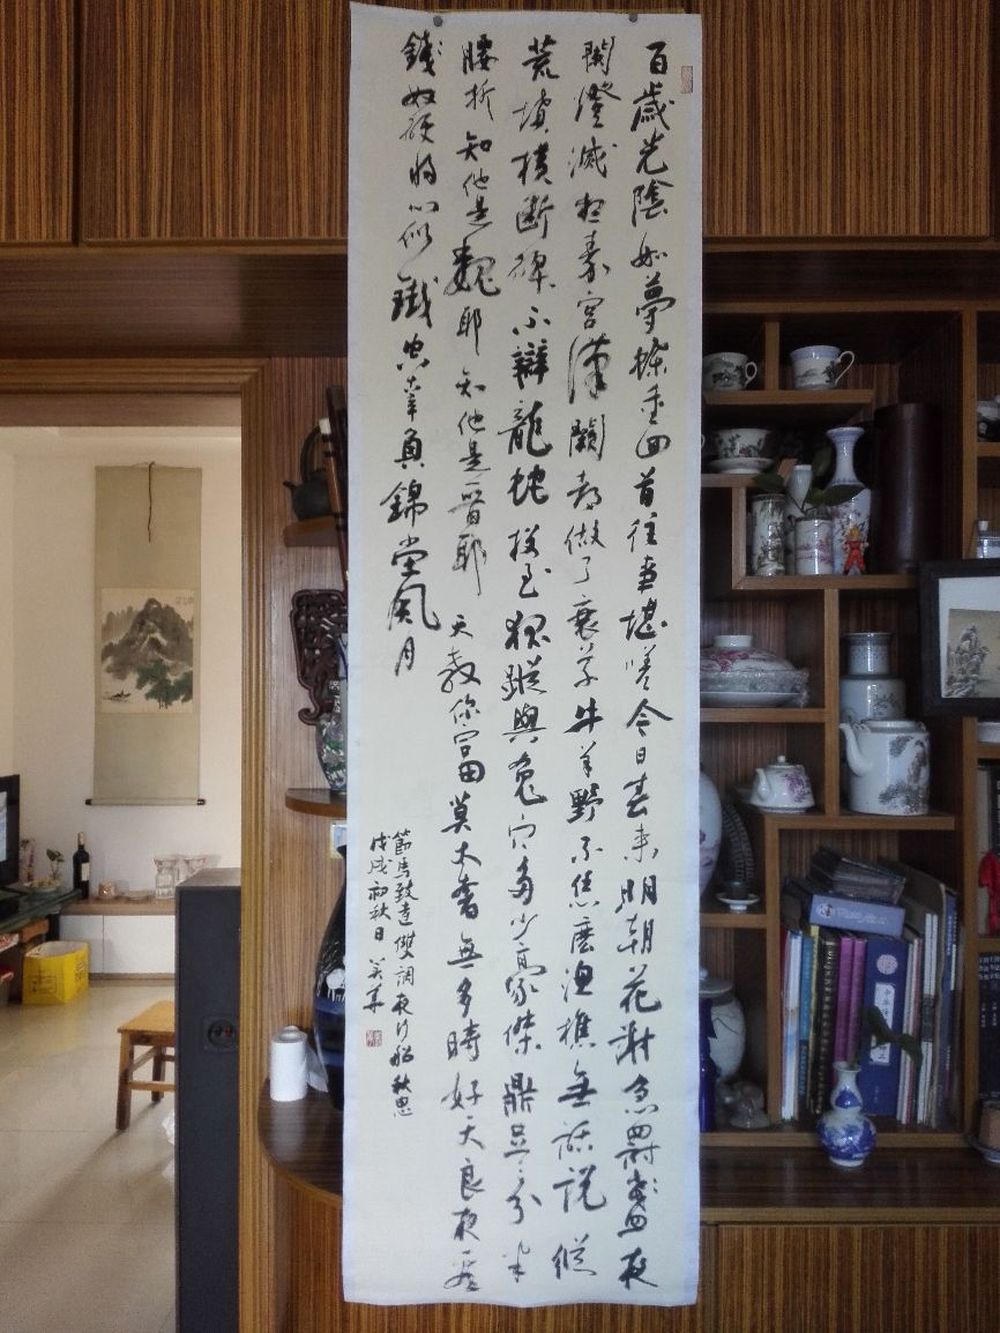 百歲光陰如夢蝶重回首往事堪嗟今日春来明朝花謝急罰盞夜
闌燈滅想秦宮漢闕都做了衰草牛羊野不恁麼漁樵無話說縱
荒墳橫斷碑不辯龍蛇投至狐蹤與兔穴多少豪傑鼎足三分半
腰折知他是魏耶知他是晋耶天教你富莫太奢無多時好天良夜看
錢奴硬將心似鐵空辜負錦堂風月
節馬致遠雙調夜行船秋思
戊戌初秋日